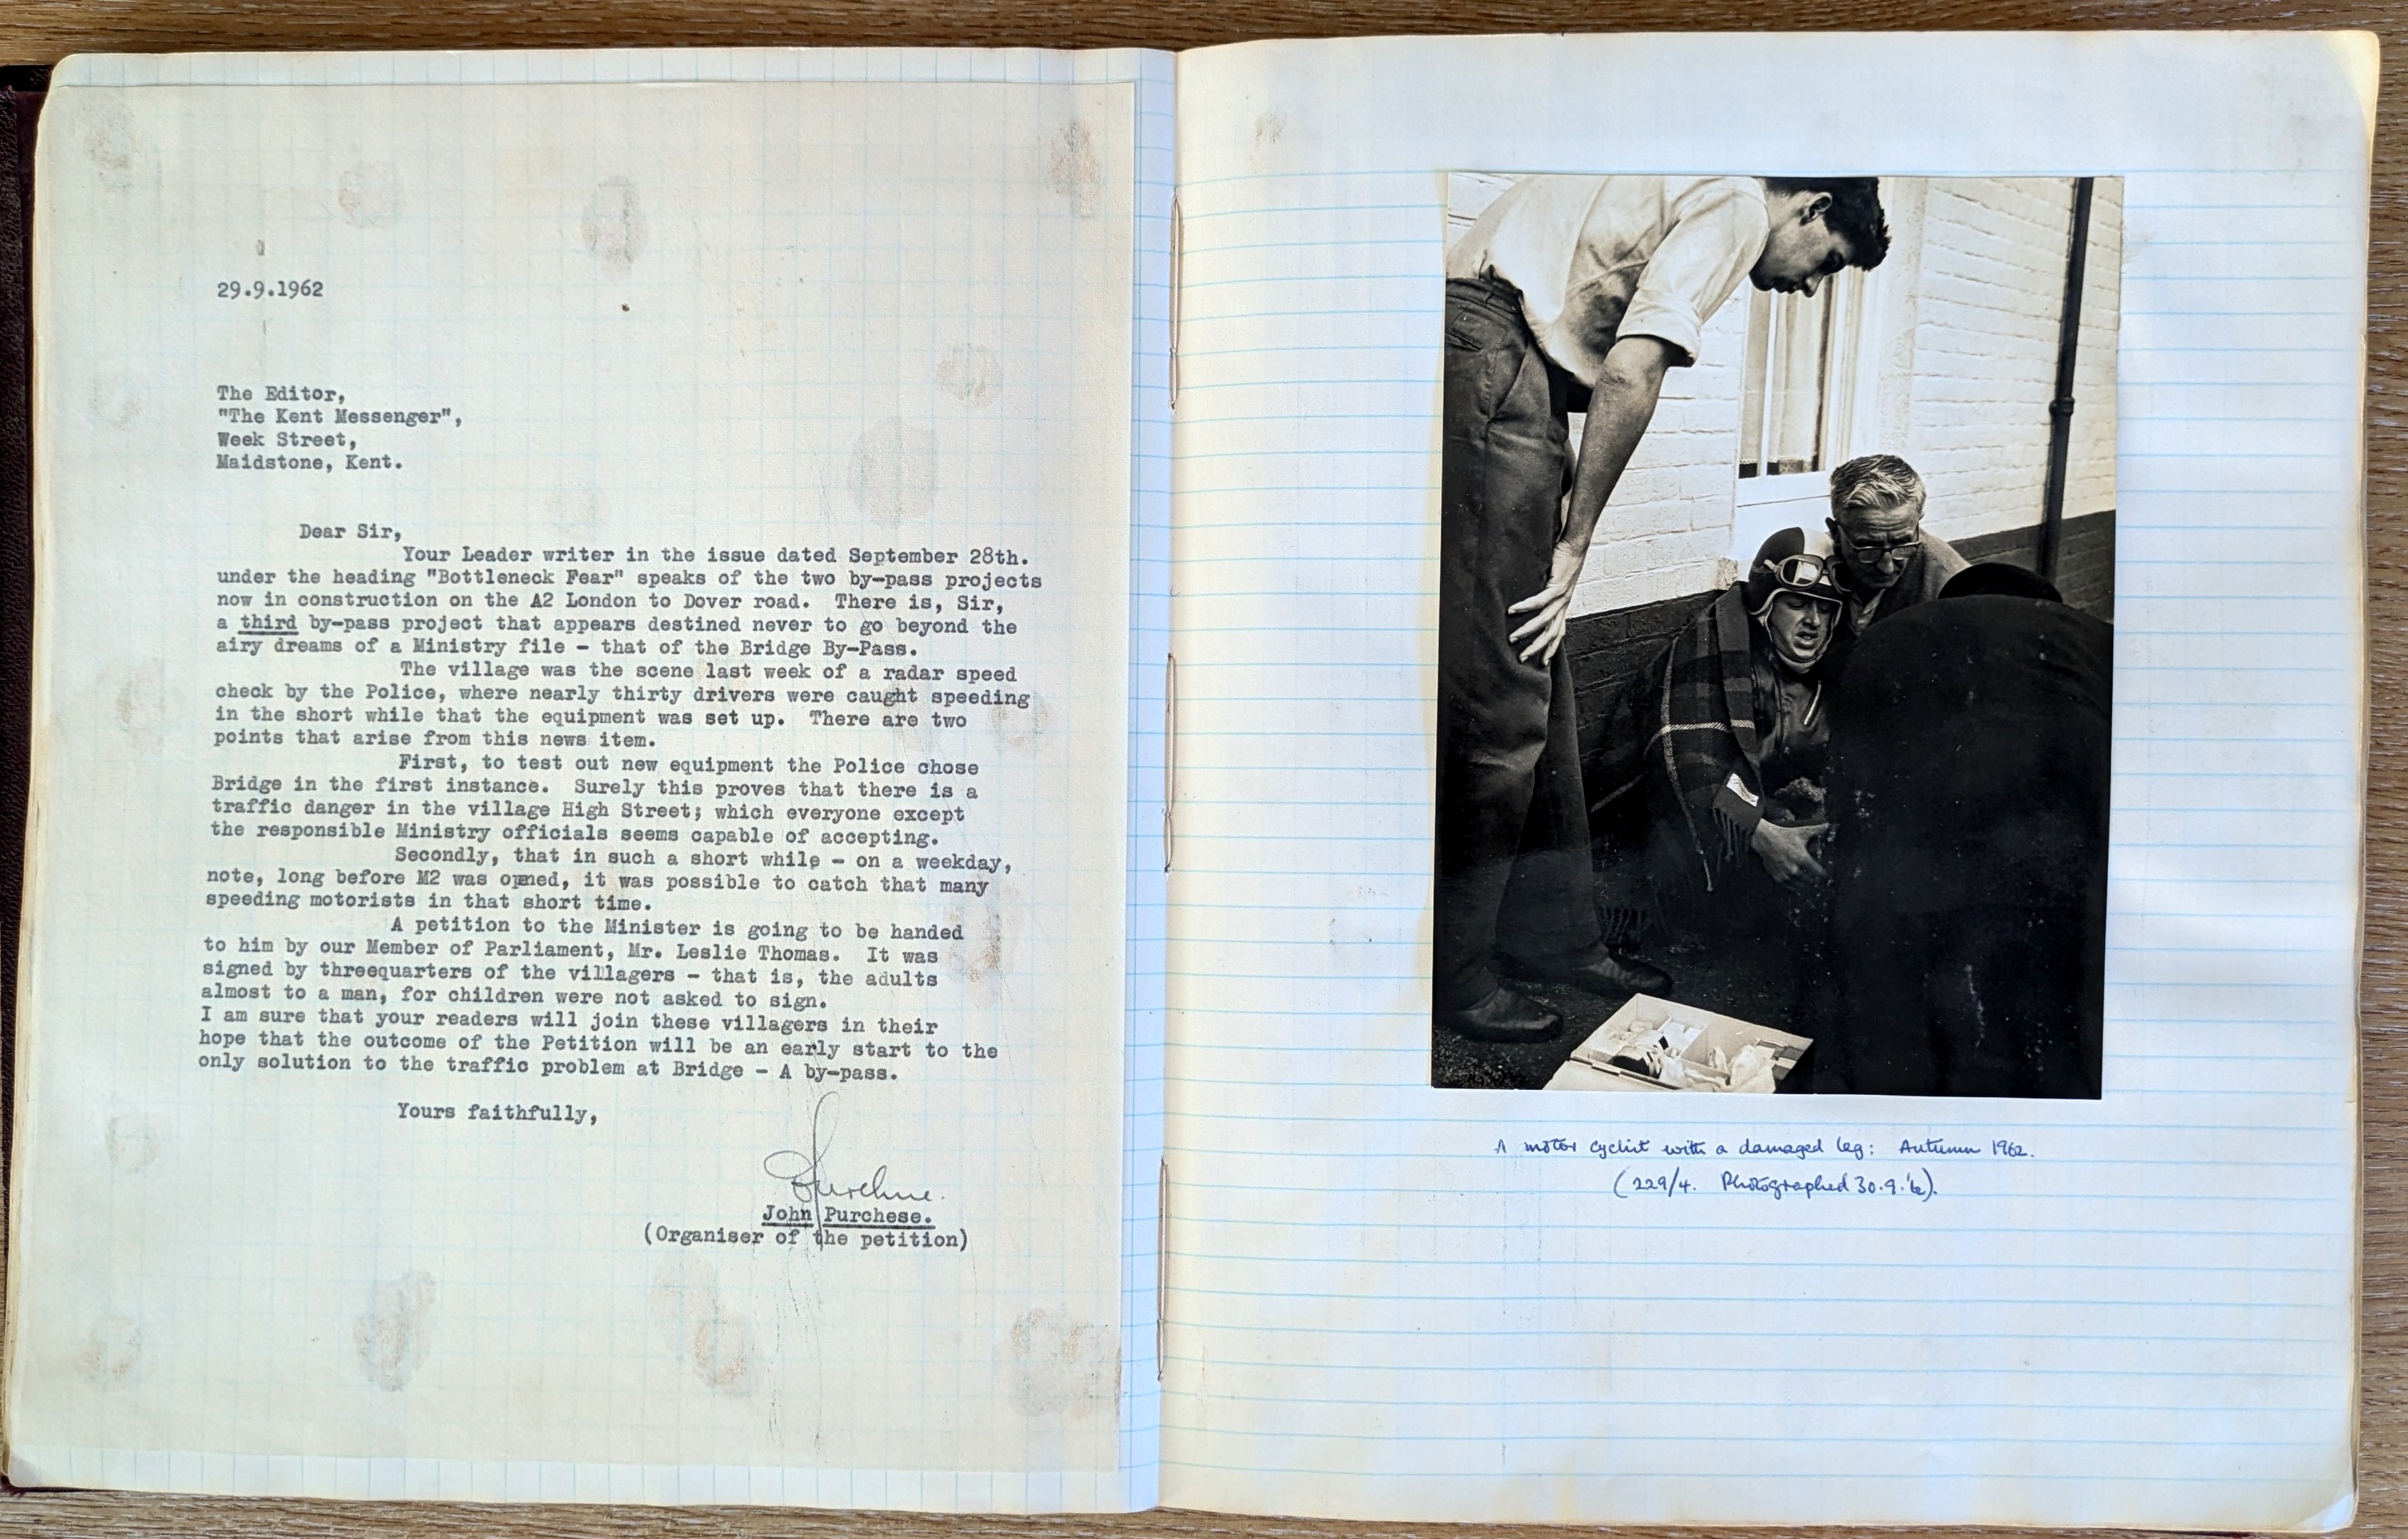 29.9.1962
The Editor,
"The Kent Messenger",
Week Street,
Maidstone, Kent.
Dear Sir,
Your Leader writer in the issue dated September 28th.
under the heading "Bottleneck Fear" speaks of the two by-pass projects
now in construction on the A2 London to Dover road. There is, Sir,
a third by-pass project that appears destined never to go beyond the
airy dreams of a Ministry file - that of the Bridge By-Pass.
The village was the scene last week of a radar speed
check by the Police, where nearly thirty drivers were caught speeding
in the short while that the equipment was set up. There are two
points that arise from this news item.
First, to test out new equipment the Police chose
Bridge in the first instance. Surely this proves that there is a
traffic danger in the village High Street; which everyone except
the responsible Ministry officials seems capable of accepting.
Secondly, that in such a short while - on a weekday,
note, long before M2 was opened, it was possible to catch that many
speeding motorists in that short time.
A petition to the Minister is going to be handed
to him by our Member of Parliament, Mr. Leslie Thomas. It was
signed by threequarters of the villagers - that is, the adults
almost to a man, for children were not asked to sign.
I am sure that your readers will join these villagers in their
hope that the outcome of the Petition will be an early start to the
only solution to the traffic problem at Bridge - A by-pass.
Yours faithfully,
John Purchese.
(Organiser of the petition)
A motor cyclist with a damaged leg: Autumn 1962.
(229/4. Photographed 30.9.'62).